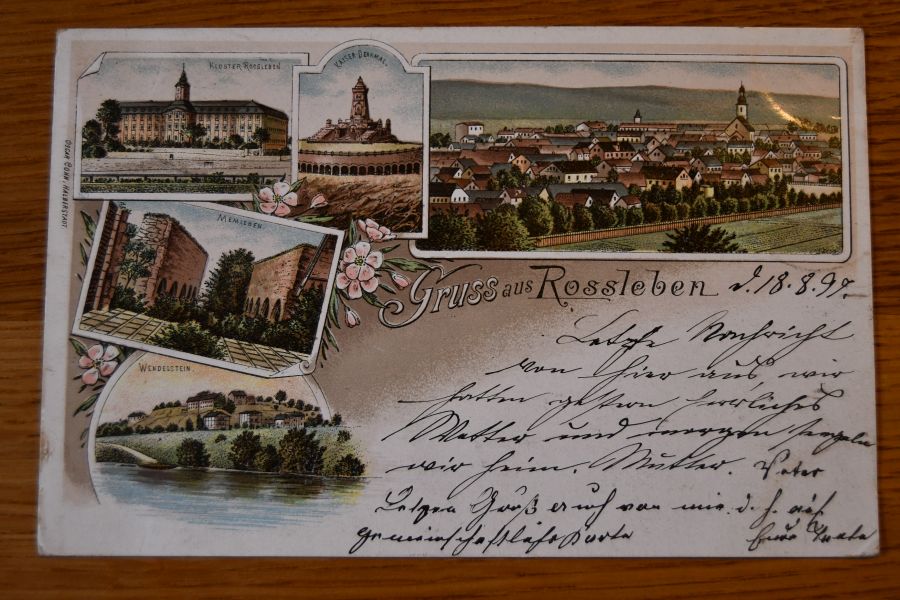 KLOSTER ROSSLEBEN
KAISER-DENKMAL
OSCAR BOHN, HALBERSTADT
MEMLEBEN.
WENDELSTEIN.
Gruss aus Rossleben
d. 18.8.97.
Letzte Nachricht
von hier aus, wir
hatten gestern herrliches
Wetter und morgen segeln
wir heim. Mutter. Vater
Letzen Gruß auch von mir d. h. auf
gemeinschaftliche Karte
Eure